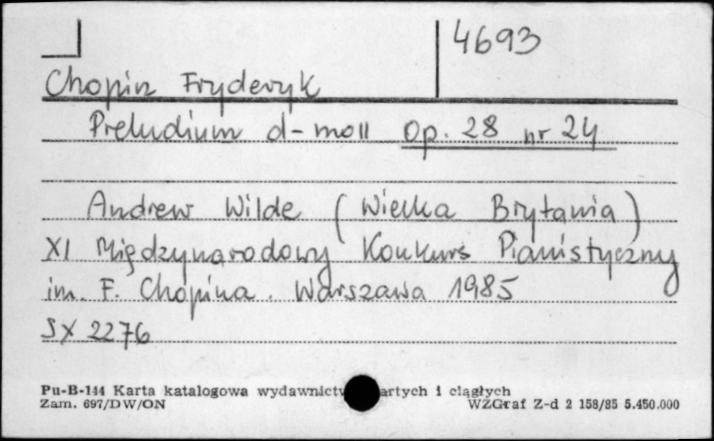 4693
Chopin Fryderyk
Preludium d-moll Op. 28 nr 24
Andrew Wilde (Wielka Brytania)
XI Międzynarodowy Konkurs Pianistyczny
im. F. Chopina. Warszawa 1985
SX 2276
Pu-B-144 Karta katalogowa wydawnictw artych i ciągłych
Zam. 697/DW/ON WZGraf Z-d 2 158/85 5.450.000